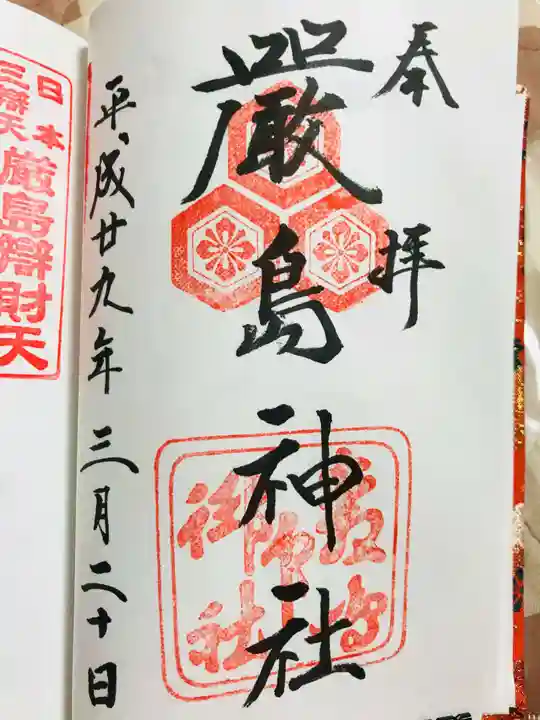 奉拝
嚴島神社
平成廿九年三月二十日
日本
三辨天
厳島辯財天